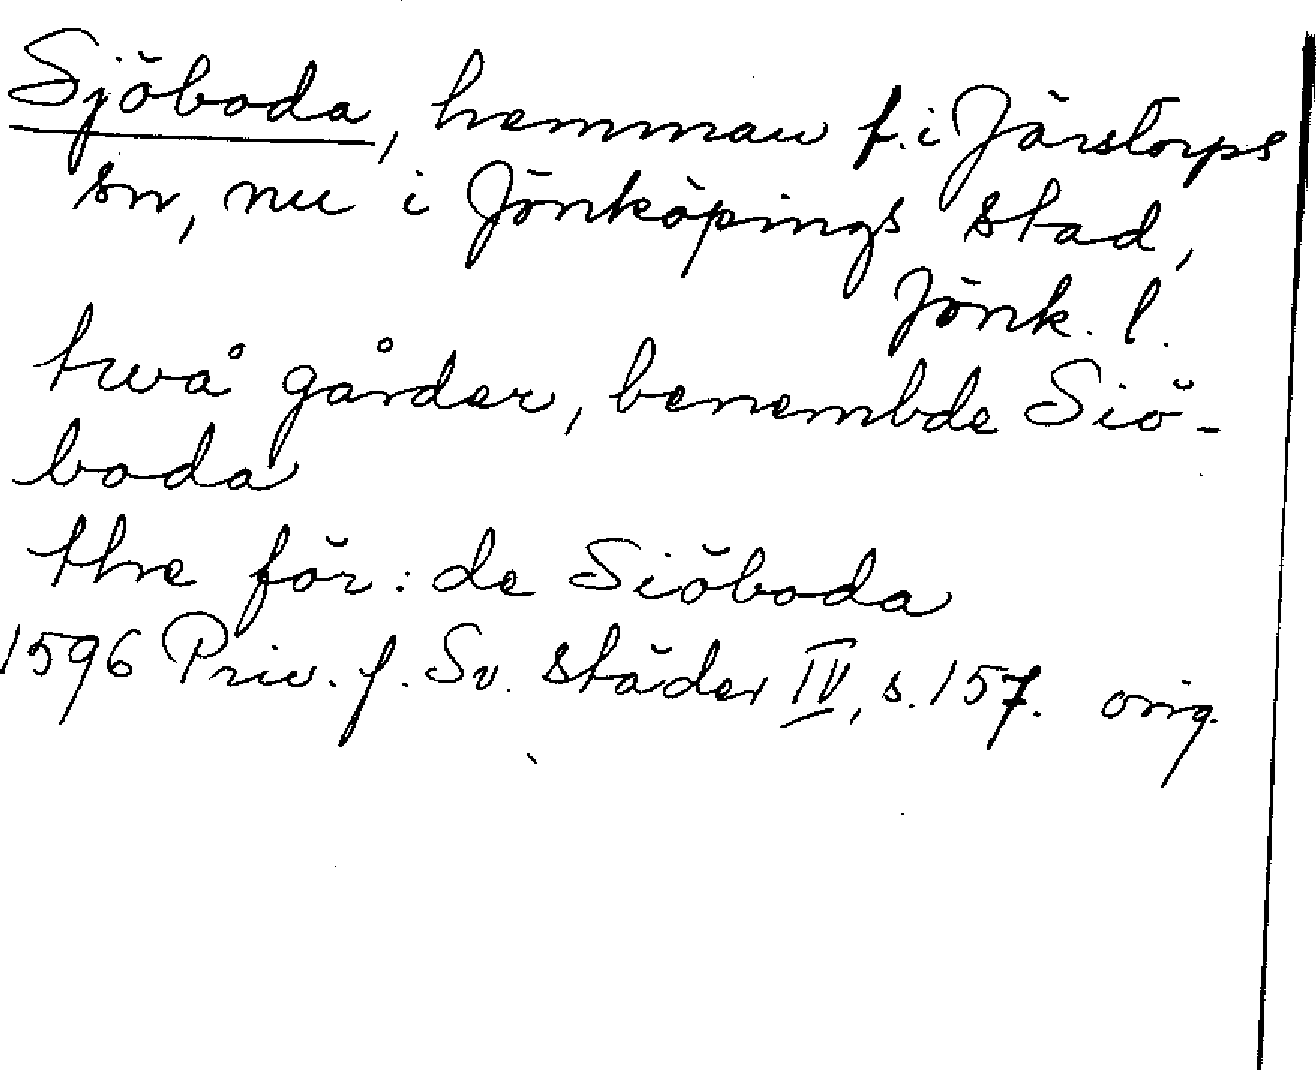 Sjöboda, hemman f. i Järstorps
sn, nu i Jönköpings stad,
Jönk. l.
twå gårder, benembde Siö-
boda
thre för: de Siöboda
1596 Priv. f. Sv. städer IV, s. 157. orig.